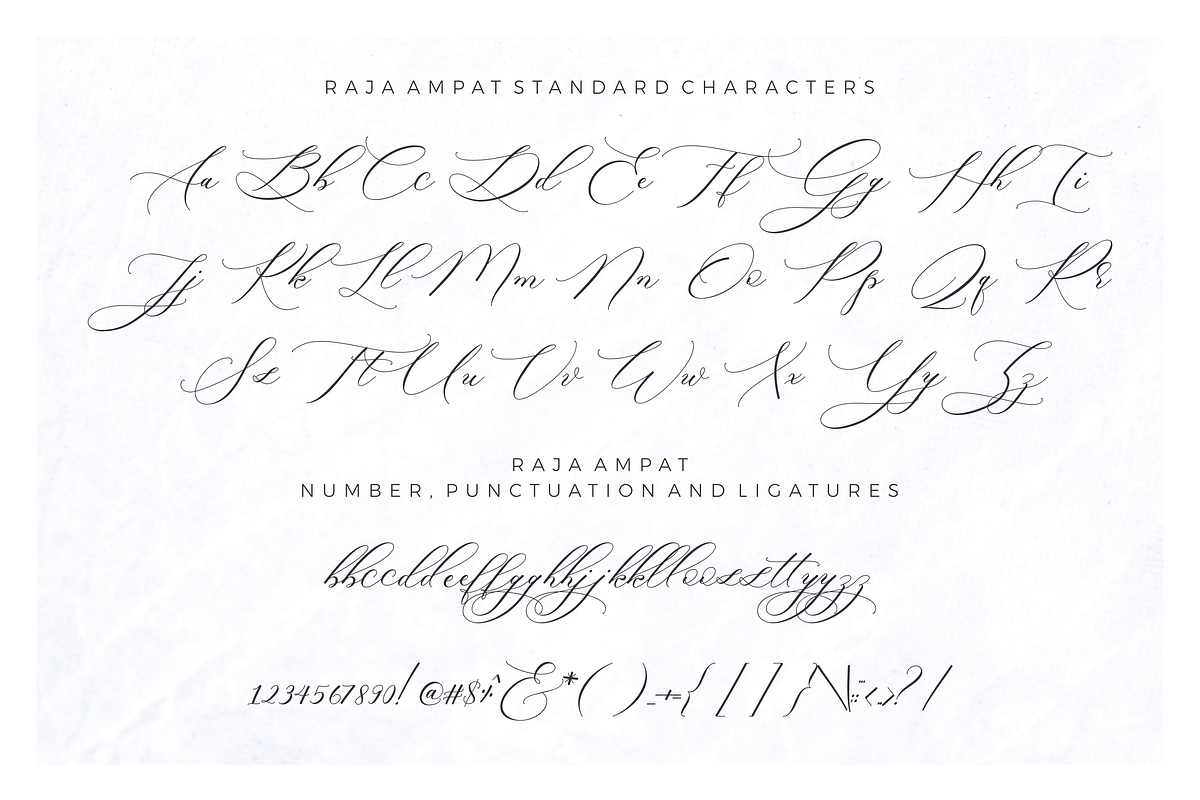 RAJA AMPAT STANDARD CHARACTERS
Aa Bb Cc Dd Ee Ff Gg Hh Ii
Jj Kk Ll Mm Nn Oo Pp Qq Rr
Ss Tt Uu Vv Ww Xx Yy Zz
RAJA AMPAT
NUMBER, PUNCTUATION AND LIGATURES
bbccddeeffgghhjjkklloossttyyzz
1234567890! @#$%^&*( )_+={ [ ] }